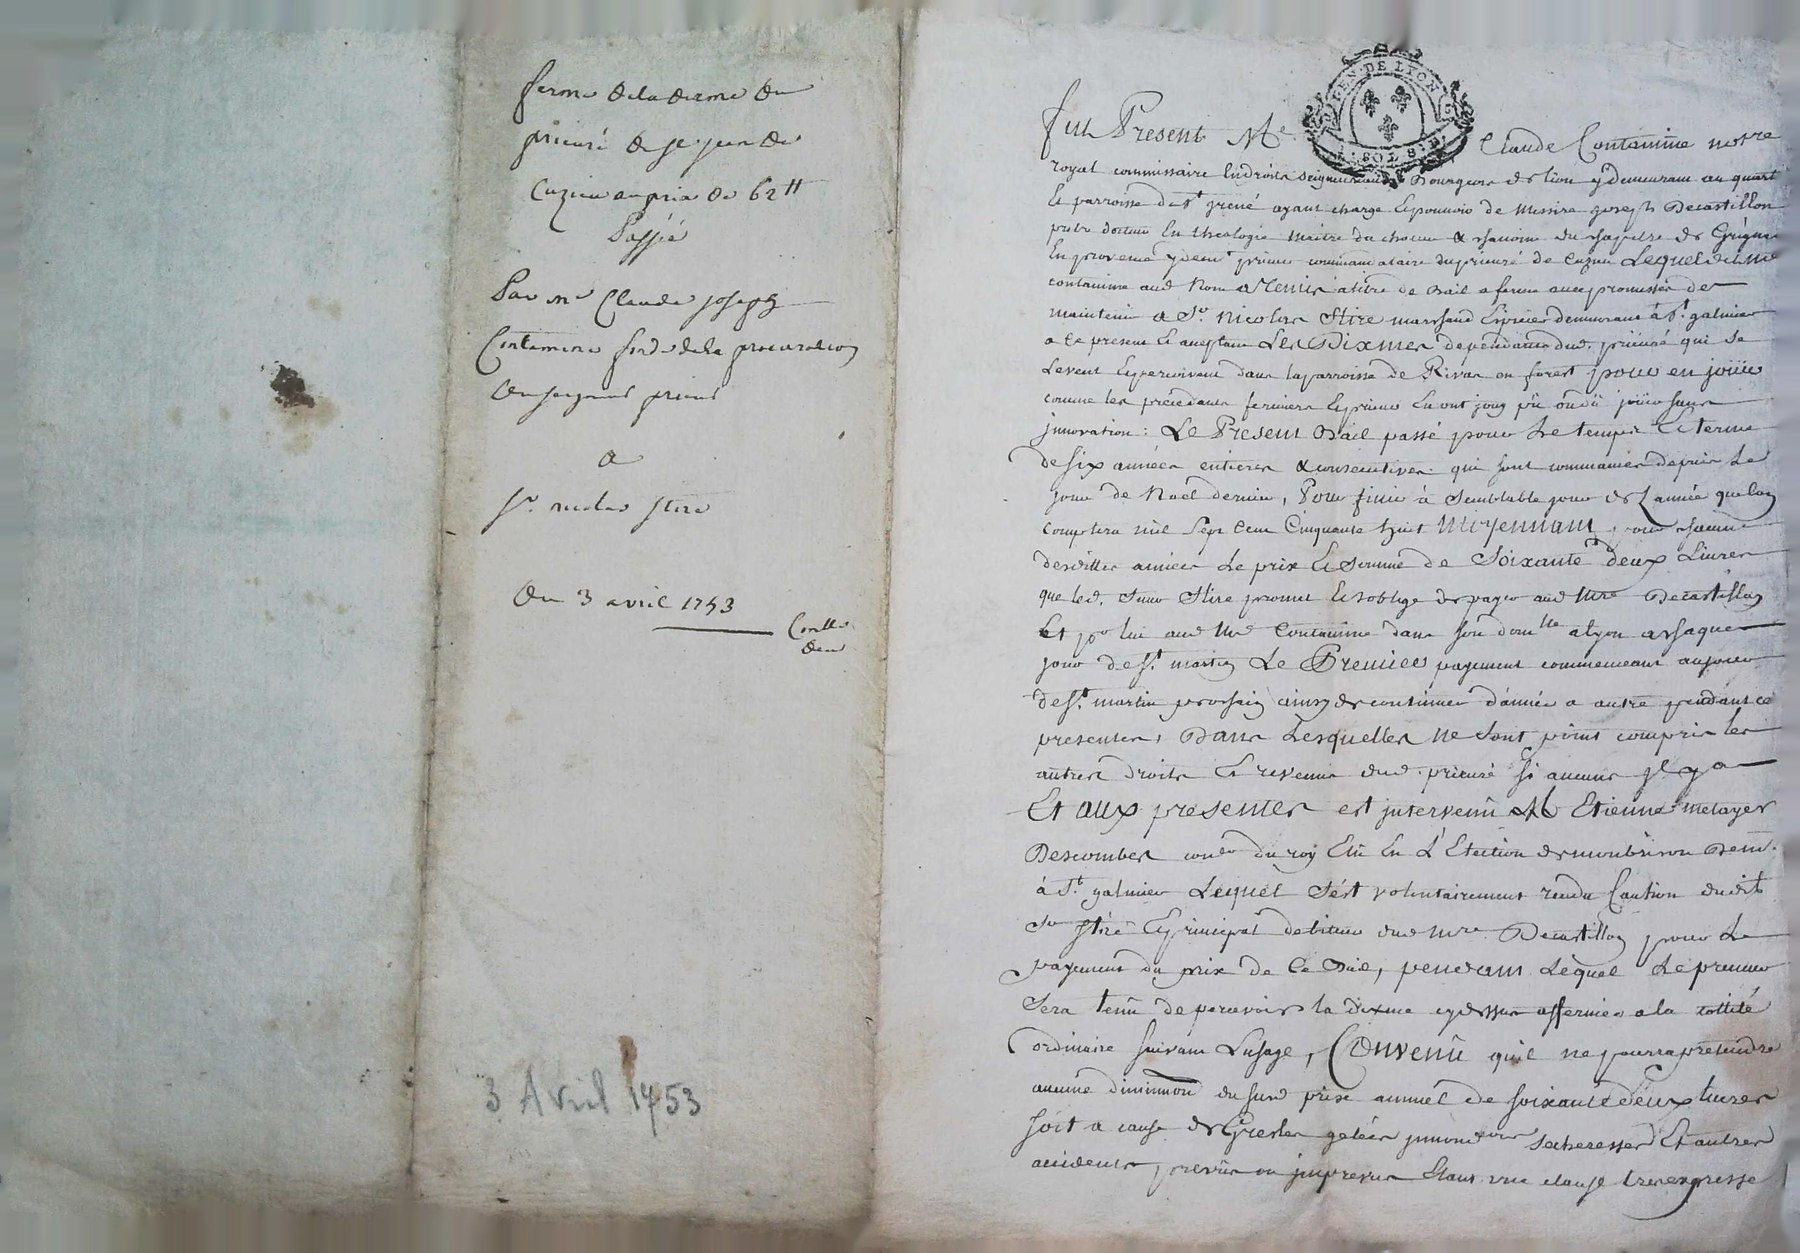 ferme de la dixme du
prieuré de st jean de
Cuzieu au prix de 62tt
Passée
Par me Claude joseph
Contamine fondé de la procuration
du seigneur prieur
a
sr. nicolas stire
du 3 avril 1753
3 Avril 1753
GEN. DE LYON
SOLS
fut Present Me Claude Contamine notre
royal commissaire en droits seigneuriaux Bourgeois de lion y demeurant au quart
et parroisse de st jrené ayant charge et pouvoir de messire joseph Decastillon
prêtre docteur en theologie maitre du choeur & chanoine du chapitre de Grignan
en provence y dem.t prieur commandataire du prieuré de Cuzieu Lequel
contamine aud. nom a remis a titre de bail a ferme avec promesse de
maintenir a Sr. nicolas Stire marchand Epicier demeurant à st. galmier
a ce present et acceptant Les Dixmes dependantes dud. prieuré qui se
Levent et perçoivent dans la parroisse de Rivas en forest pour en joüir
comme les précédents fermiers et prieurs en ont jouy pû ou dû joüir sans
jnnovation: Le Present Bail passé pour Le temps et terme
de six années entieres & consecutives qui sont commancées depuis Le
jour de Noël dernier, Pour finir à Semblable jour de L'année que l'on
comptera mil Sept Cent Cinquante huit Moyennant, pour chacune
desdittes années Le prix et somme de Soixante deux Livres
que led. Sieur Stire promet et s'oblige de payer aud. Mre Decastillon
et pr lui aud. Me Contamine dans son dom.lle a lyon a chaque
jour de st. martin Le Premier payement commenceant au jour
de st. martin prochain ainsy de continuer d'année a autre pendant ce
presentes, Dans Lesquelles ne sont point compris les
autres droits et revenus dud. prieuré si aucuns jl y a
Et aux presentes est jntervenû Etienne metayer
Descombes coner du roy Elû en L'Election de montbrison Dem.
à st. galmier Lequel s'est volontairement rendu Caution dudit
Sr Stire et principal debiteur dud. Mre Decastillon pour Le
payement du prix de ce Bail, pendant Lequel Le preneur
sera tenû de percevoir la dixme cy dessus affermée a la cottité
ordinaire suivant L'usage, Convenû qu'il ne pourra pretendre
aucune diminuon du susd. prix annuel de soixante deux Livres
soit a cause de Gresles gelées jnnondaons secheresses et autres
accidents prevûs ou jmprevus Etant une clause tres expresse